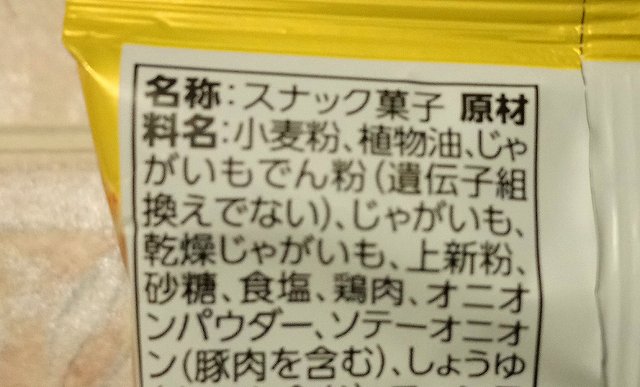 名称:スナック菓子 原材
料名:小麦粉、植物油、じゃ
がいもでん粉(遺伝子組
換えでない)、じゃがいも、
乾燥じゃがいも、上新粉、
砂糖、食塩、鶏肉、オニオ
ンパウダー、ソテーオニオ
ン(豚肉を含む)、しょうゆ